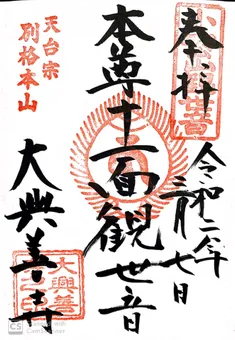 奉拝
令和二年
三月七日
本尊十一面観世音
天台宗
別格本山
大興善寺
大興善
CS Scanned with
CamScanner